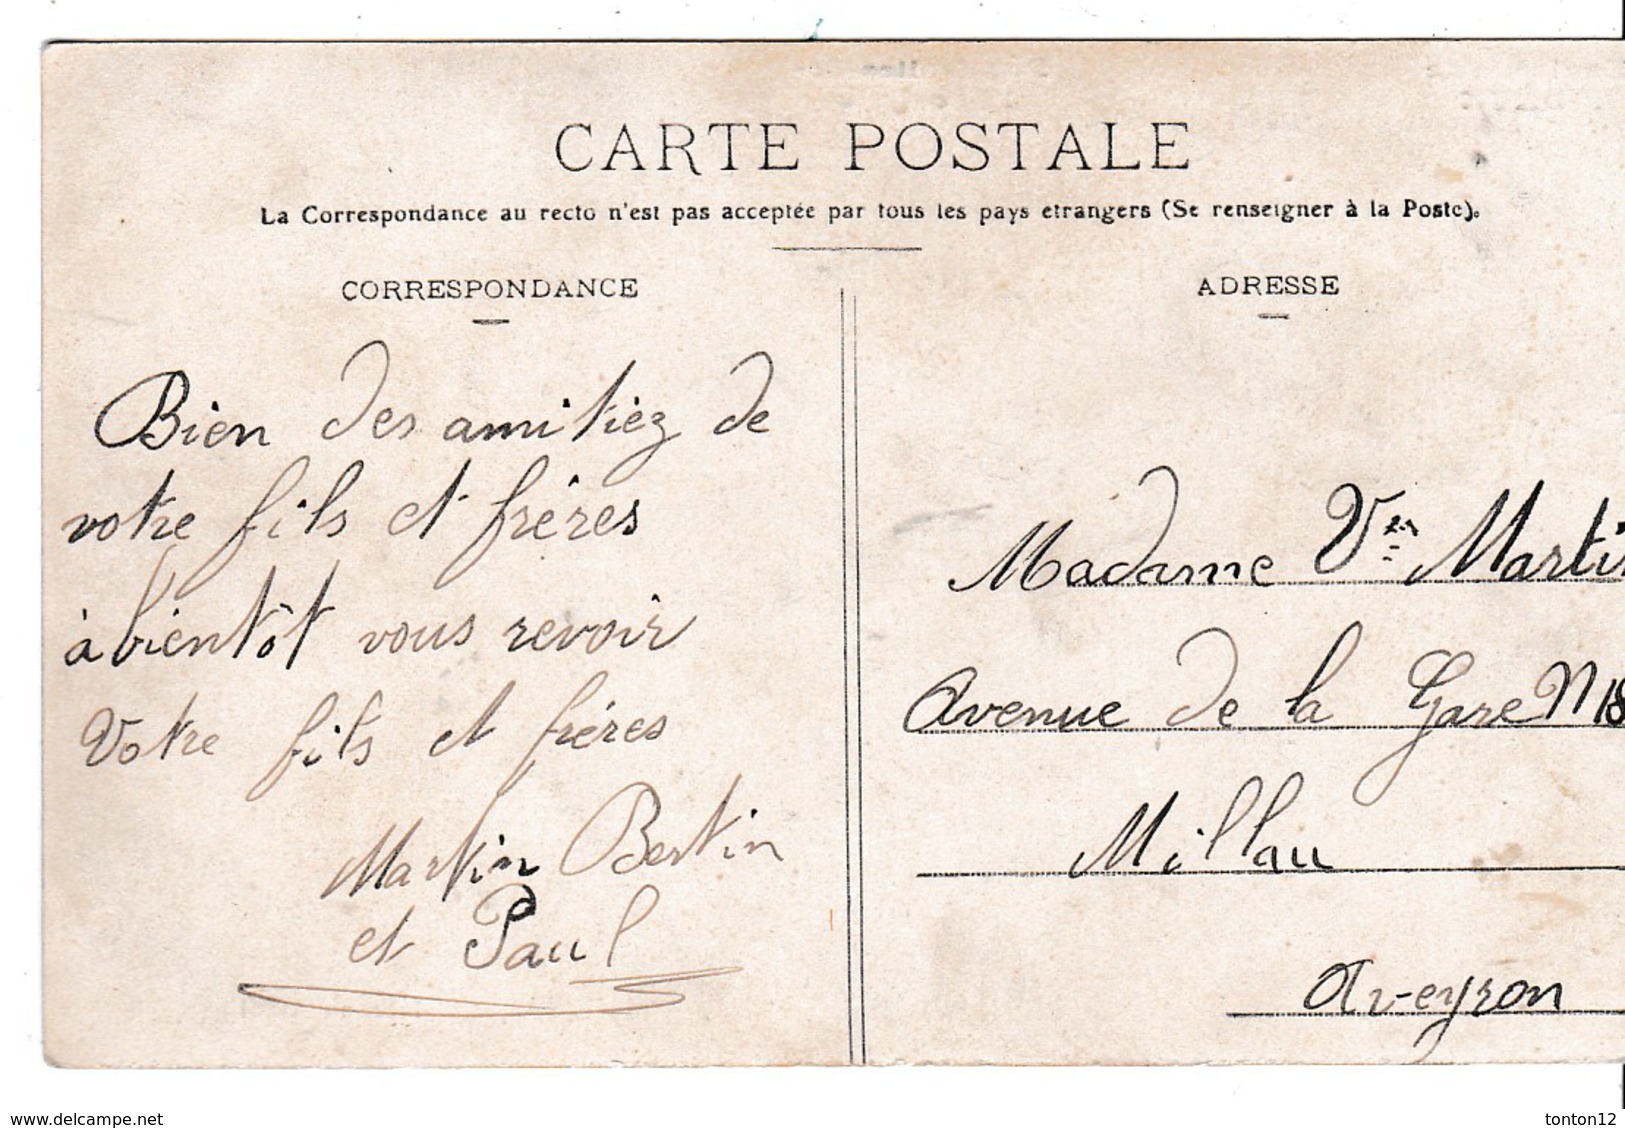 CARTE POSTALE
La Correspondance au recto n'est pas acceptée par tous les pays etrangers (Se renseigner à la Poste).
CORRESPONDANCE
Bien des amitiez de
votre fils et frères
à bientôt vous revoir
Votre fils et fréres
Martin Bertin
et Paul
ADRESSE
Madame Vve Martin
Avenue de la Gare N 18
Millau
Aveyron
www.delcampe.net
tonton12